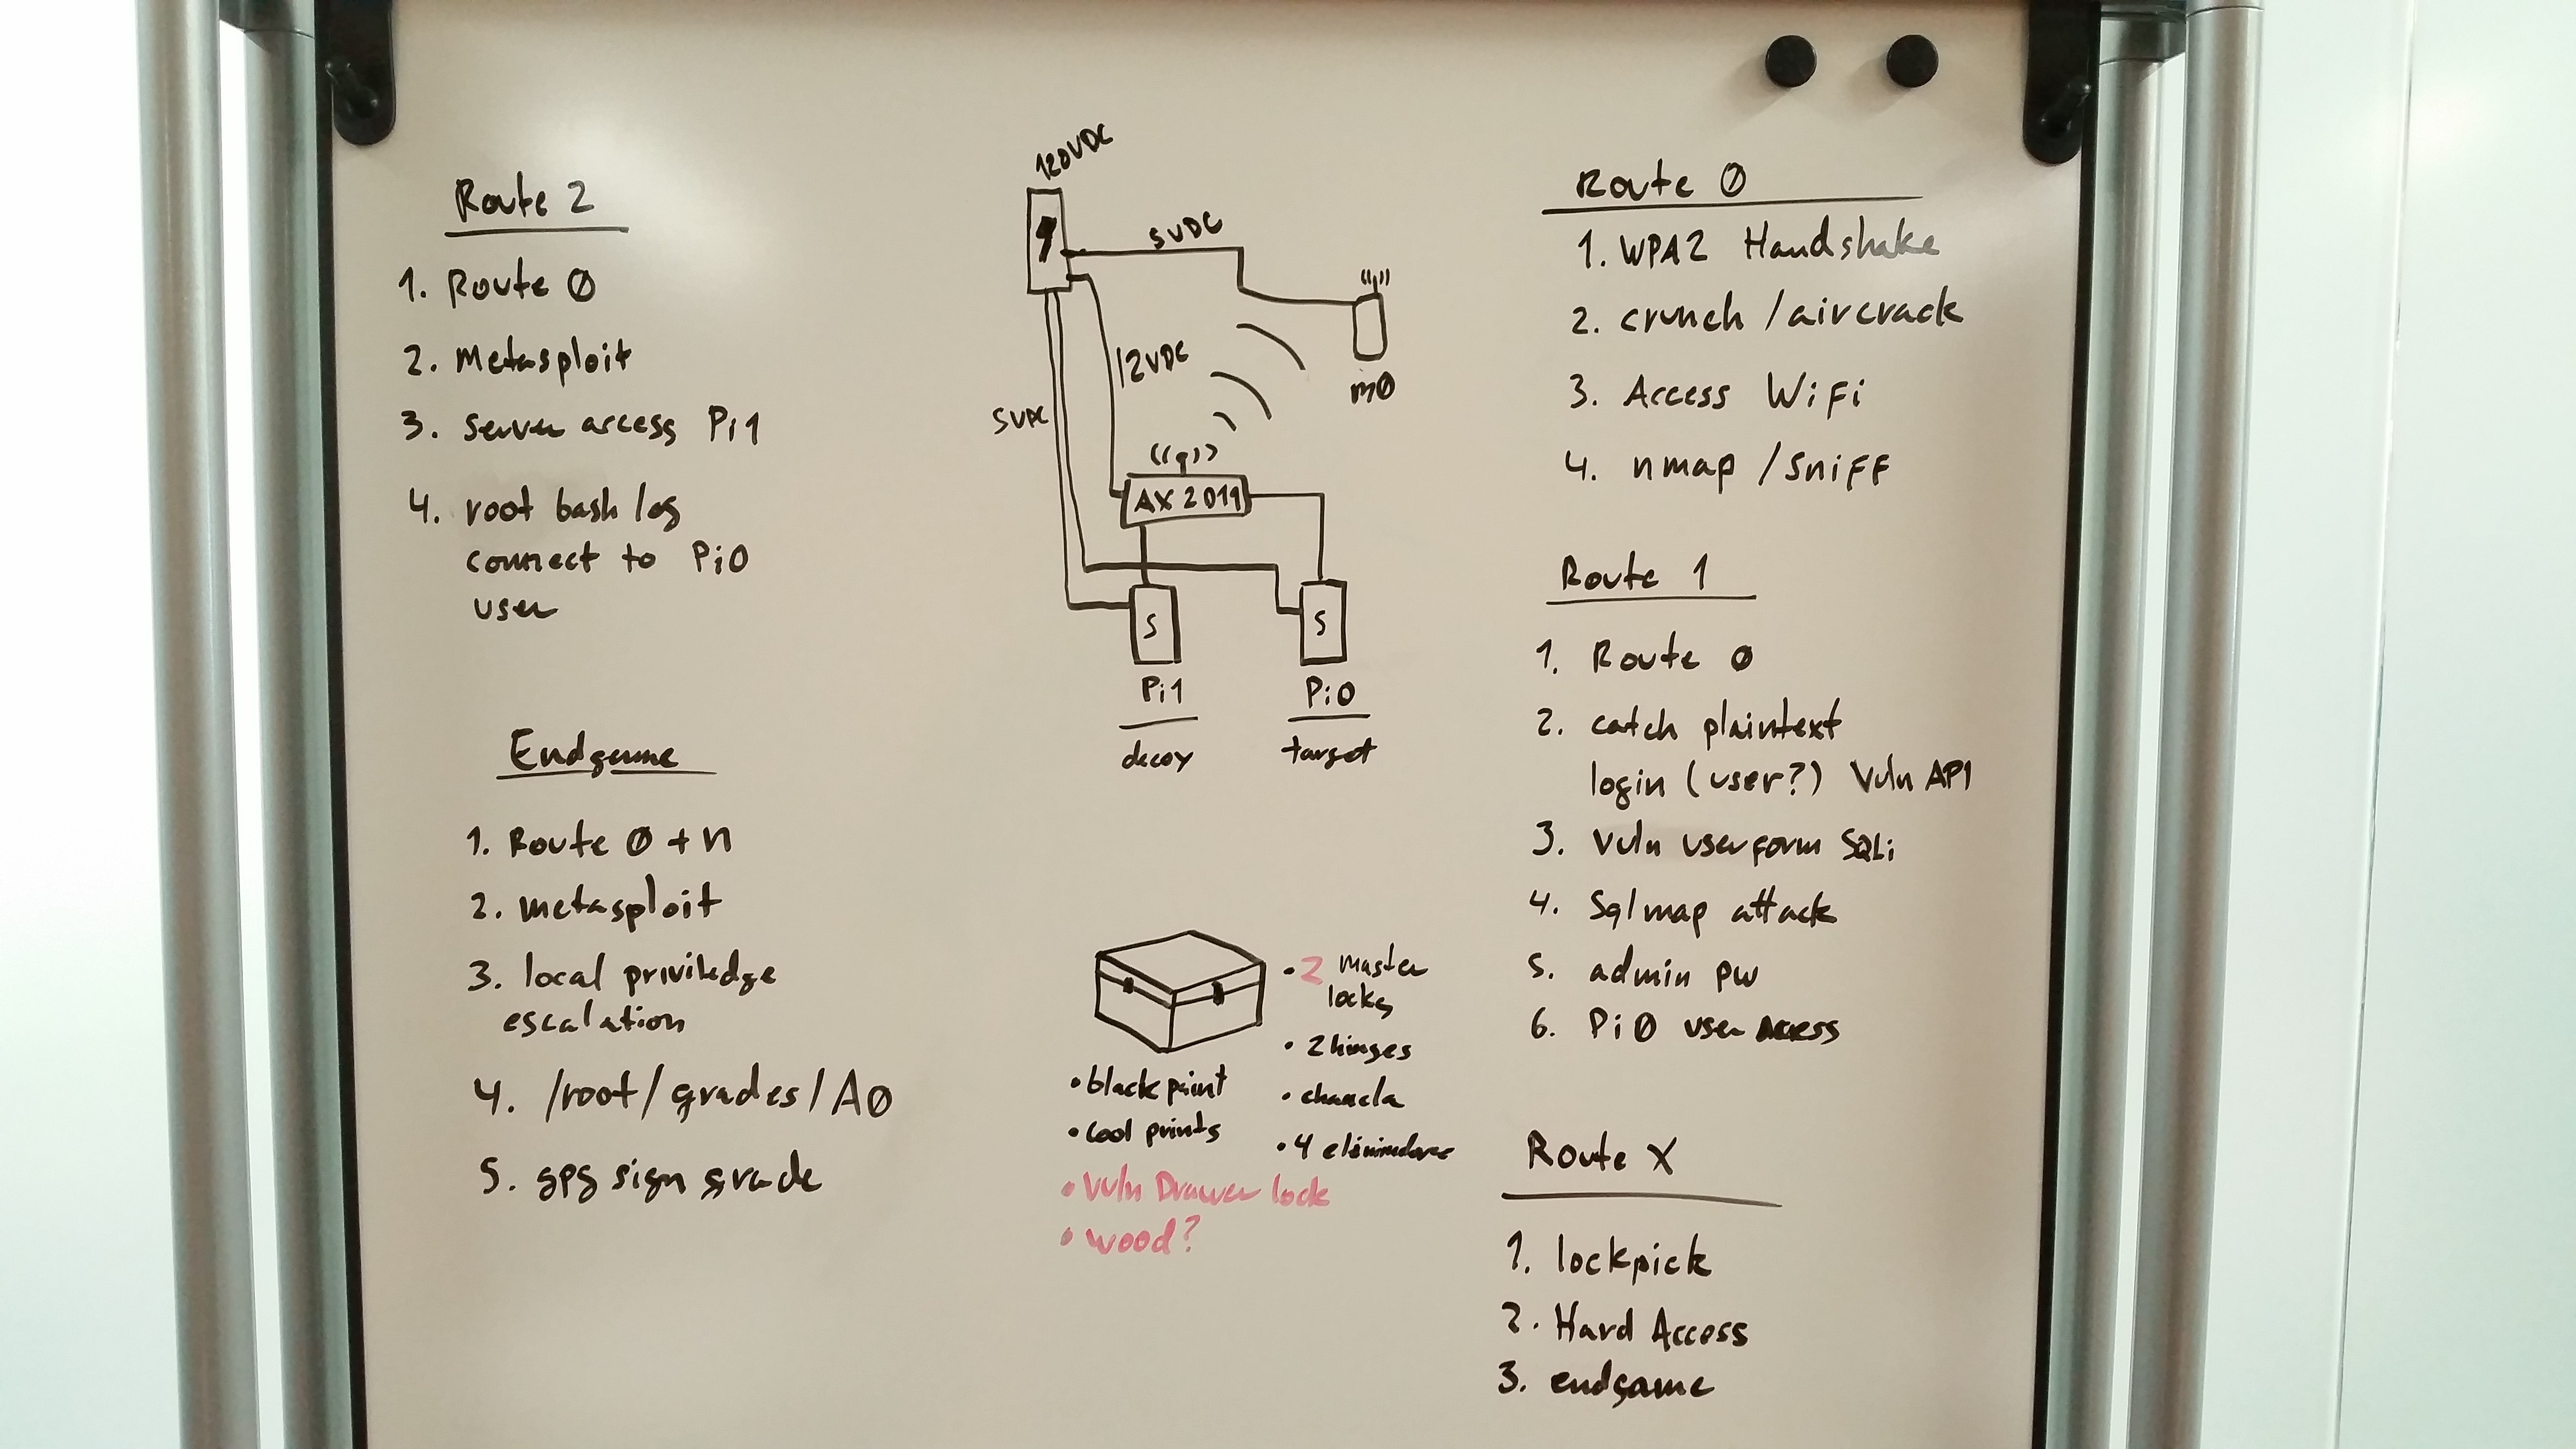 Route 2
1. Route 0
2. Metasploit
3. server access Pi1
4. root bash log
connect to Pi0
user
Endgame
1. Route 0 + n
2. metasploit
3. local priviledge
escalation
4. /root/grades/A0
5. gpg sign grade
120VDC
5VDC
12VDC
5VDC
m0
AX 2019
S
S
Pi1
Pi0
decoy
target
• 2 Master
locks
• 2 hinges
• chancla
• 4 eliminadores
• black paint
• cool prints
• Vuln Drawer lock
• wood?
Route 0
1. WPA2 Handshake
2. crunch / aircrack
3. Access WiFi
4. nmap / sniff
Route 1
1. Route 0
2. catch plaintext
login (user?) Vuln API
3. Vuln userform SQLi
4. Sqlmap attack
5. admin pw
6. Pi0 user access
Route X
1. lockpick
2. Hard Access
3. endgame